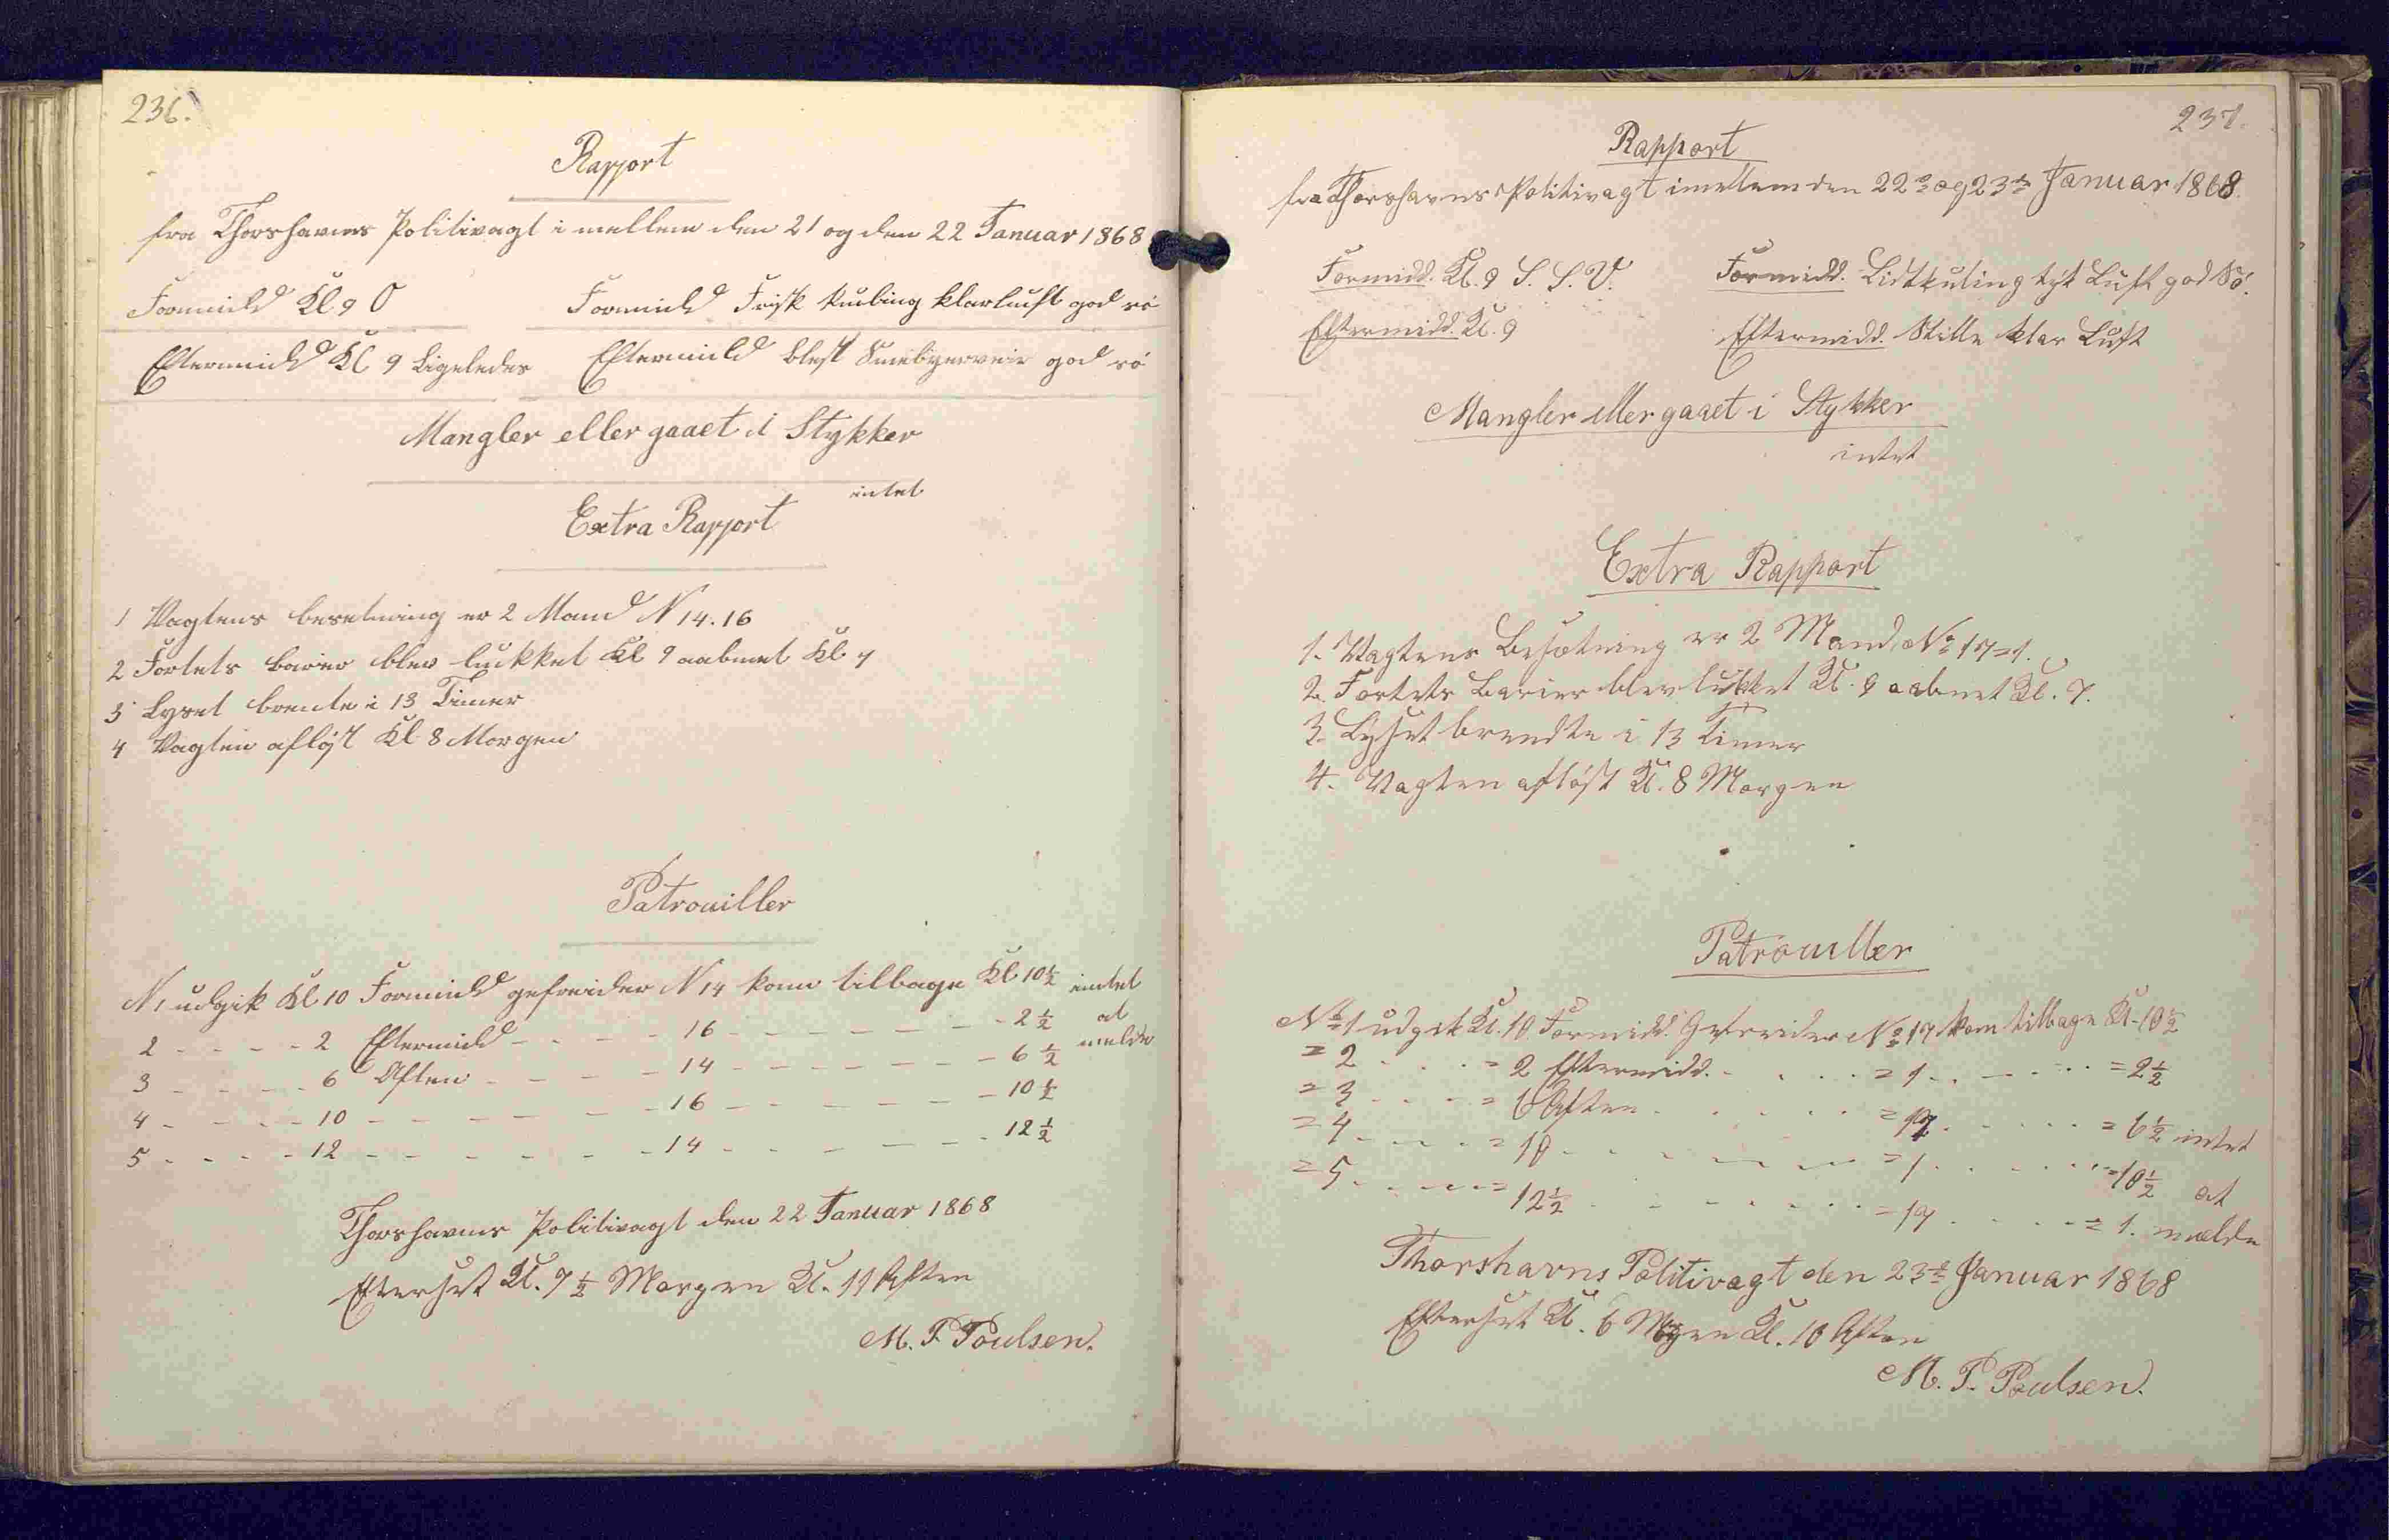 236.
Rapport
fra Thorshavns Politivagt i mellem den 21 og den 22 Januar 1868
Formidd Kl 9 O
Formidd Frisk Kuling klarluft god sö
Eftermidd Kl 9 Ligeledes
Eftermidd blest god sö
Mangler eller gaaet i Stykker
intet
Extra Rapport
1 Vagtens besetning er 2 Mand N 14. 16
2 Fortets barier blev lukket Kl 9 aabnet Kl 7
3 Lyset brente i 13 Timer
4 Vagten afløst Kl 8 Morgen
Patrouiller
N 1 udgik Kl 10 Formidd gefreider N 14 kom tilbage Kl 10½ intet
2 - - - - 2 Eftermidd - - - - 16 - - - - - - - 2½ at
3 - - - - 6 Aften - - - - 14 - - - - - - 6½ melde
4 - - - - 10 - - - - - - 16 - - - - - - 10½
5 - - - - 12 - - - - - - 14 - - - - - - 12½
Thorshavns Politivagt den 22 Januar 1868
Efterset Kl. 7½ Morgen Kl. 11 Aften
M. P. Poulsen.
237.
Rapport
fra Thorshavns Politivagt imellem den 22de og 23de Januar 1868.
Formidd. Kl. 9 S. S. V.
Formidd. Lidt kuling tyk Luft god Sö.
Eftermidd. Kl. 9
Eftermidd. Stille klar Luft
Mangler eller gaaet i Stykker
intet
Extra Rapport
1. Vagtens Besætning er 2 Mand No 17=1.
2. Fortets Barier blev lukket Kl. 9 aabnet Kl. 7.
3. Lyset brendte i 13 Timer
4. Vagten afløst Kl. 8 Morgen
Patrouiller
No 1 udgik Kl. 10 Formidd. Gefreider No 17 kom tilbage Kl. 10½
= 2 . . . = 2 Eftermidd. . . . = 1 . . . . . = 2½
= 3 . . . = 6 Aften . . . . . = 17 . . . . . = 6½ intet
= 4 . . . = 10 . . . . . = 1 . . . . . = 10½ at
= 5 . . . = 12½ . . . . . = 17 . . . . = 1. melde
Thorshavns Politivagt den 23de Januar 1868
Efterset Kl. 6 Morgen Kl. 10 Aften
M. P. Poulsen.